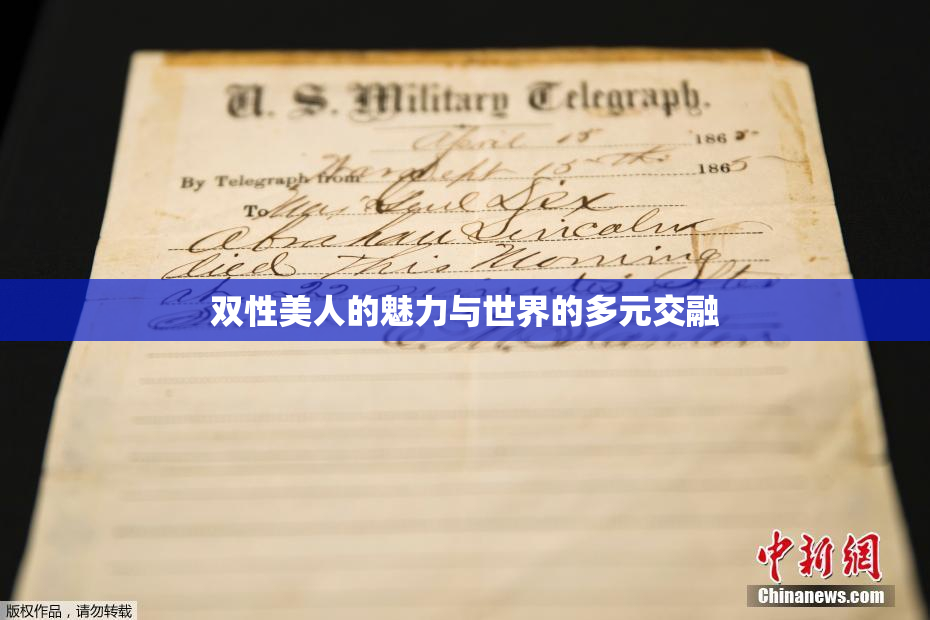 U. S. Military Telegraph.
April 15 1865
By Telegraph from War Dept 15th 1865
To Maj Genl Dix
Abraham Lincoln
died This Morning
at 22 minutes after
双性美人的魅力与世界的多元交融
E. M. Stanton
中新网
Chinanews.com
版权作品，请勿转载